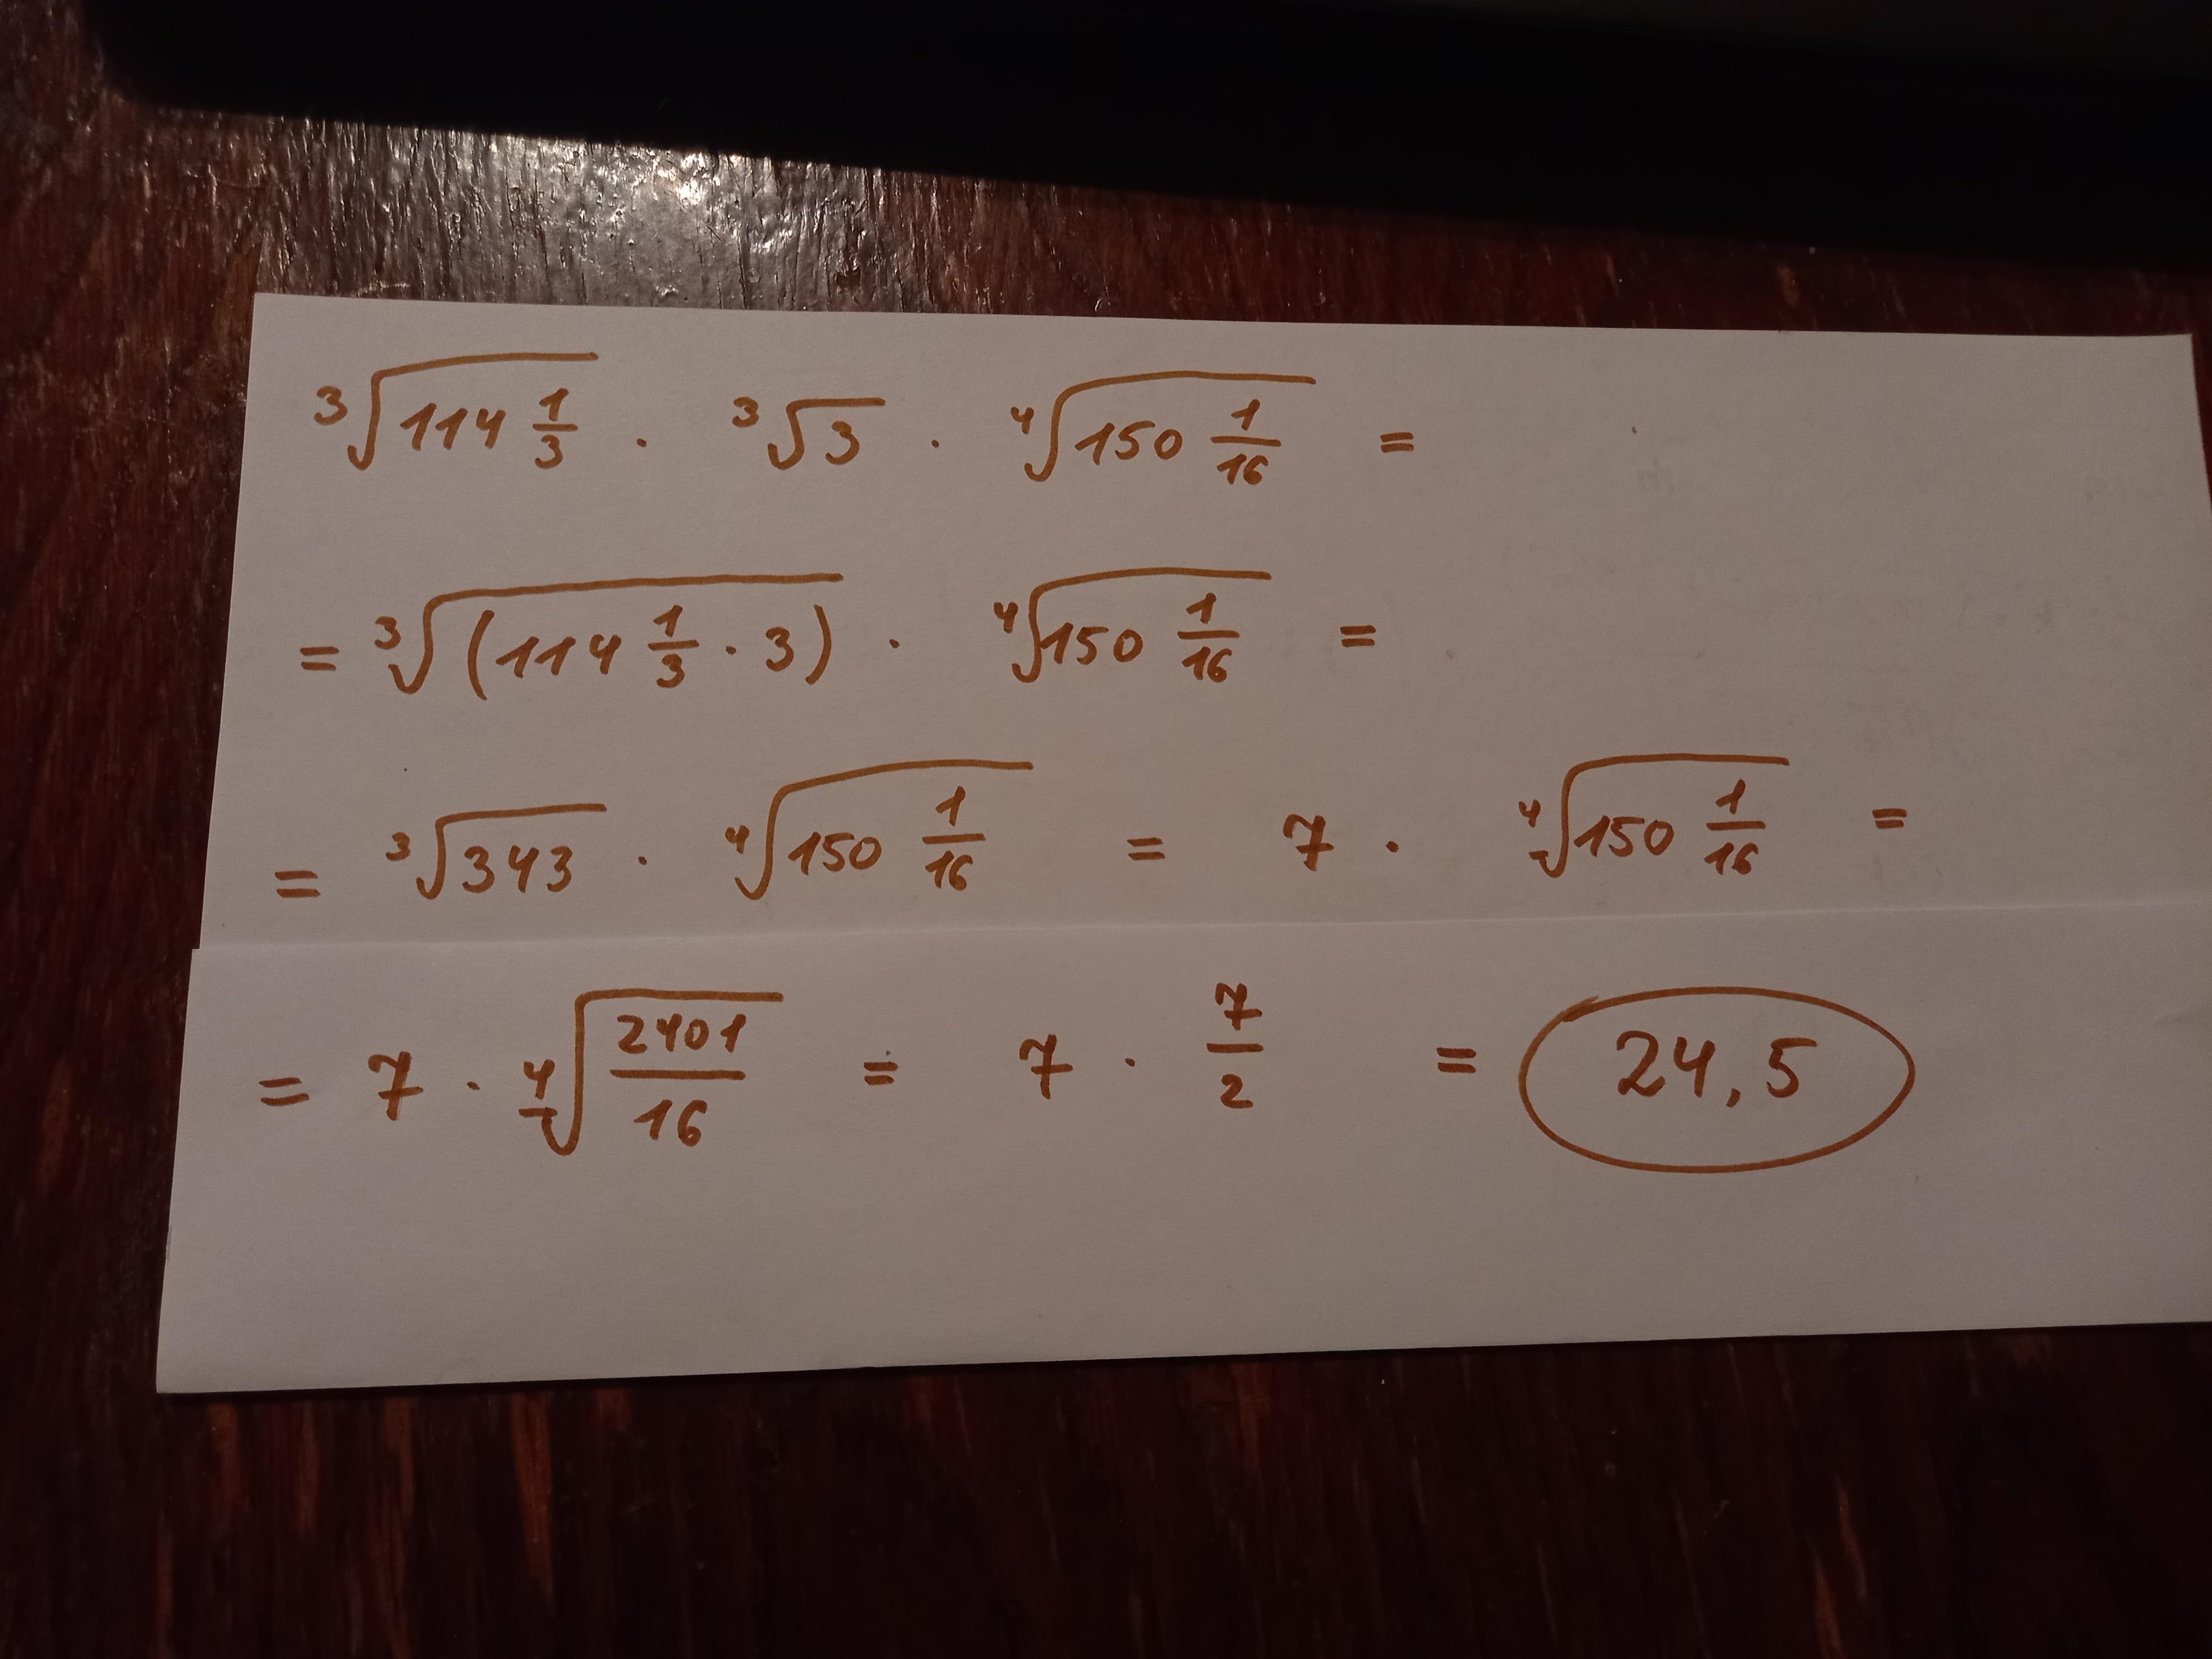 ∛(114 1/3) · ∛3 · ∜(150 1/16) =
= ∛((114 1/3 · 3)) · ∜(150 1/16) =
= ∛343 · ∜(150 1/16) = 7 · ∜(150 1/16) =
= 7 · ∜(2401/16) = 7 · 7/2 = 24,5